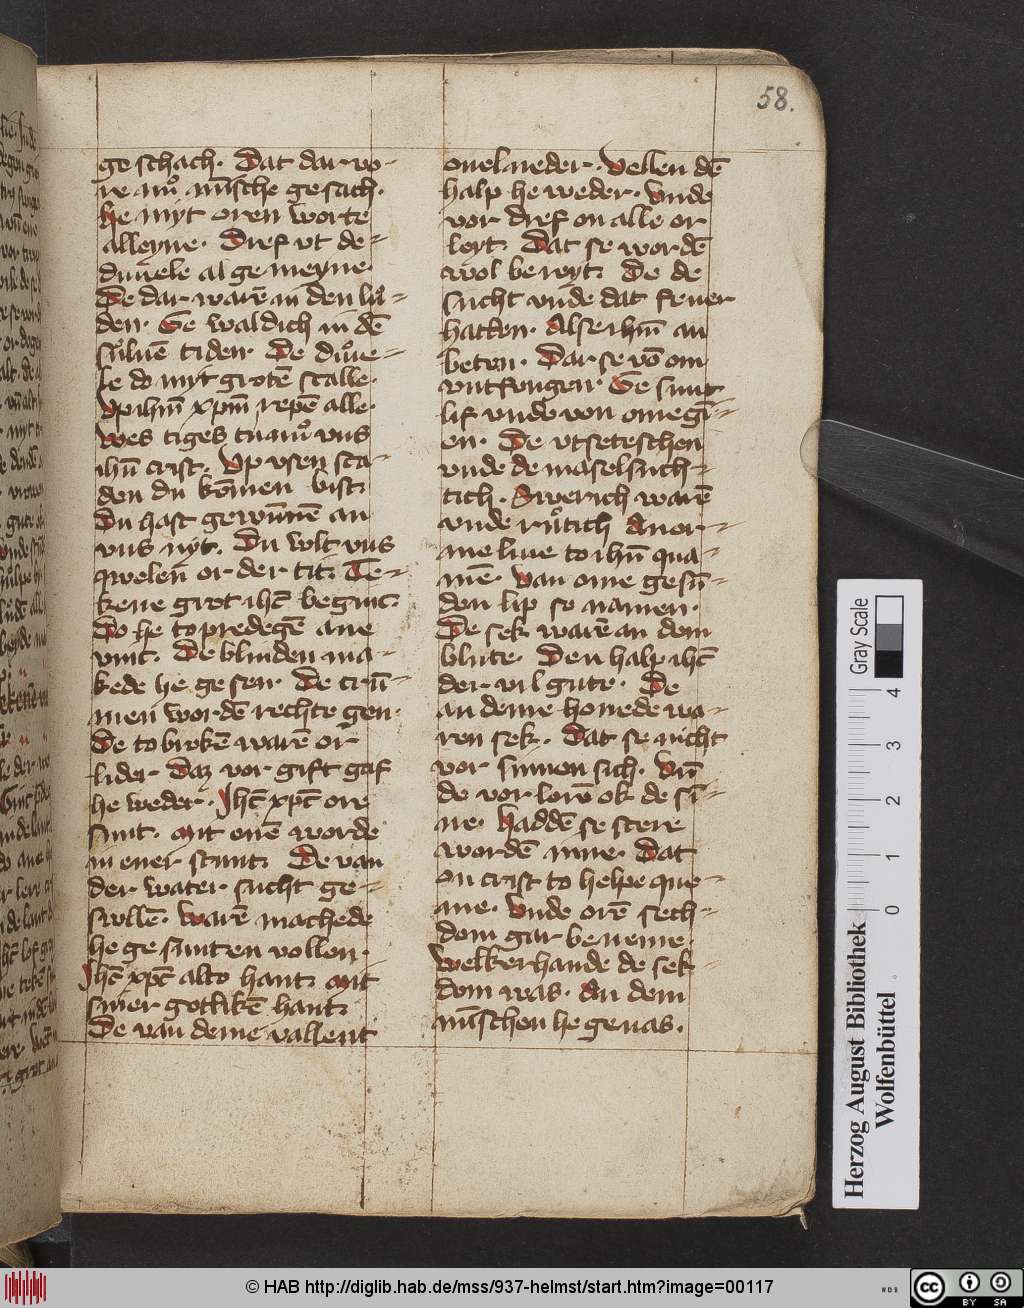 58.
ge schach. Dat dar vo-
re nuͦ mīsche ge sach.
he myt oren worte
alleyne. Dref vt de-
duuele al ge meyne.
De dar warē in den luͦ-
den. Ge waldich in dē
suͦluē tiden. De duͦve-
le do myt grotē scalle.
Vp ihm̄ xpm̄ repē alle.
wes tiges tu nuͦ vns
ihū crist. Vp vsen sca-
den du kōmen bist.
Du hast gewūnē an
vns nyt. Du wlt vns
qwelen or der tit. Te-
kene grot ihc̄ begunc.
Do he to predegē ane
vinc. De blinden ma-
kede he ge sen. De crū-
men wordē rechte gen.
De to brokē warē or
lider Daz vor gift gaf
he weder. Jhc̄ xpc̄ ore
sunt. mit enē worde
in ener stunt. De van
der water sucht ge-
swllē. warē machede
he ge sunt en vollen.
Jhc̄ xpc̄ alto hant. mit
siner gotlikē hant.
De van deme vallent
ouel neder. Vellen dē
halp he weder. Vnde
vor dref on alle or
leyt. Dat se wordē
wol be reyt. De de
sucht vnde dat feuer
hatten. Alse ihm̄ an
beten. Dar se vō om
vntfengen. Ge sunt
lif vnde von ome gī-
en. De vtseteschen
vnde de maselsuch-
tich. Awerich warē
vnde ruͦtich An or-
me liue to ihū qua-
mē. van ome gesū-
den lip so namen.
De sek warē an dem
blute. Den halp ihc̄
der vil gute. De
an deme houede wo-
ren sek. Dat se nicht
vor sunnen sich. Vn̄
de vor lorē ok de si-
ne. haddē se stere
wordē inne. Dat
on crist to helpe que-
me. Vnde orē sech-
dom gar be neme.
welkerhande de sek-
dom was. An dem
mīschen he genas.
Herzog August Bibliothek
Wolfenbüttel
Gray Scale
0 1 2 3 4
© HAB http://diglib.hab.de/mss/937-helmst/start.htm?image=00117
WDB
cc BY SA